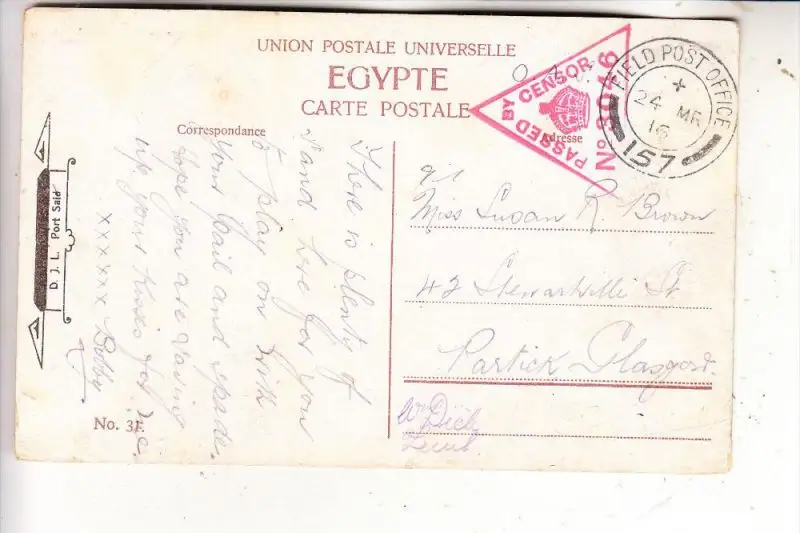 UNION POSTALE UNIVERSELLE
EGYPTE
CARTE POSTALE
Correspondance
Adresse
PASSED BY CENSOR
No 3046
FIELD POST OFFICE
24 MR
16
157
D. J. L. Port Said
There is plenty of
sand here for you
to play on with
your pail and spade.
hope you are saving
up your kisses for me.
xxxxxx Bobby
No. 31
Miss Susan R. Brown
42 Stewartville St
Partick Glasgow.
Lieut.